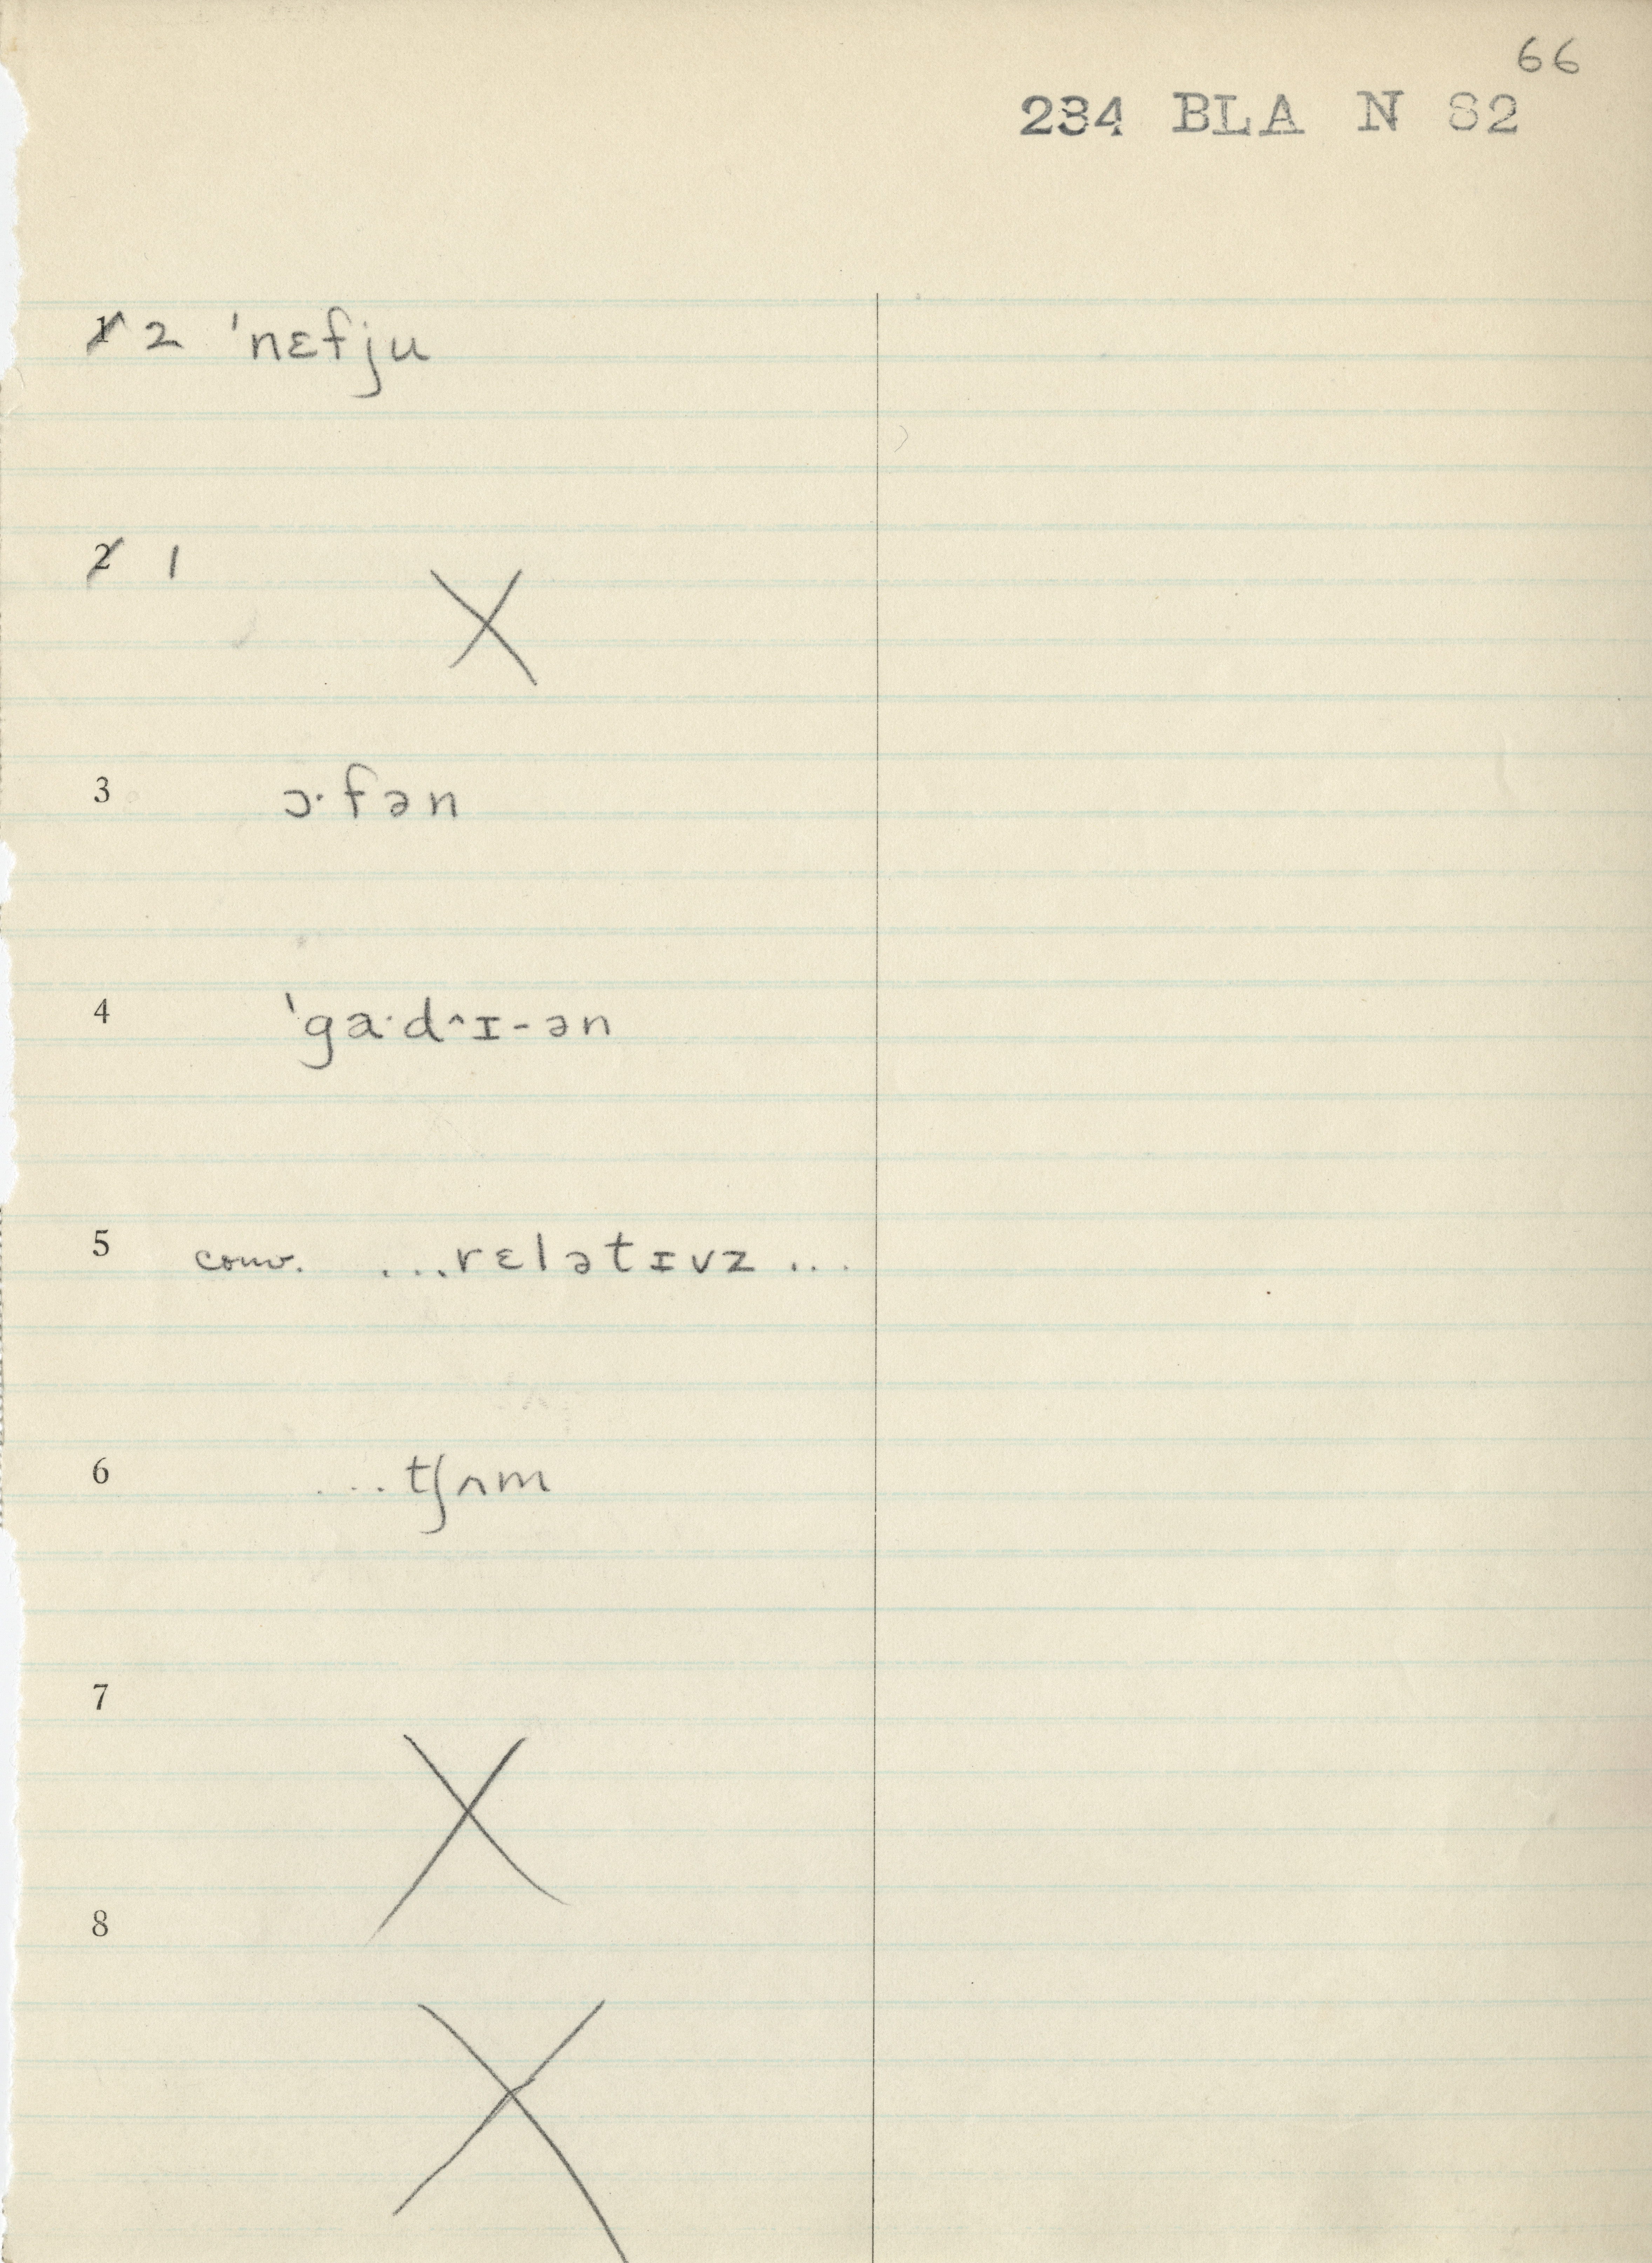 66
234 BLA N 82
1 2 ˈnɛfju
2 1
X
3 ɔ·fən
4 ˈga·d^ɪ-ən
5 conv. ...rɛlətɪvz...
6 ...tʃʌm
7
X
8
X